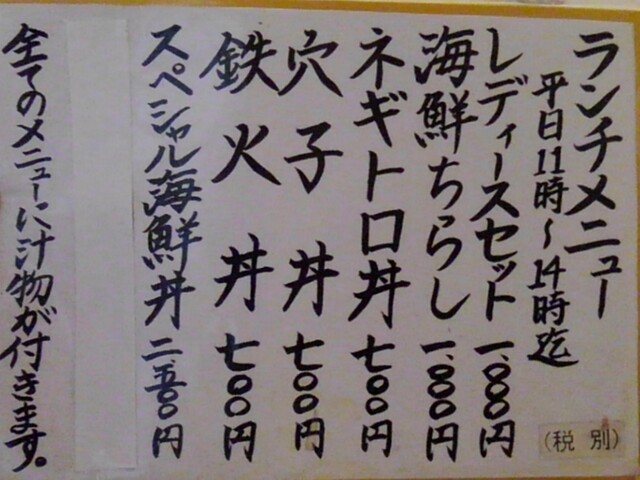 ランチメニュー
平日11時〜14時迄
(税別)
レディースセット 一、000円
海鮮ちらし 一、000円
ネギトロ丼 七00円
穴子丼 七00円
鉄火丼 七00円
スペシャル海鮮丼 二、五00円
全てのメニューに汁物が付きます。